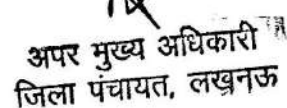 अपर मुख्य अधिकारी
जिला पंचायत, लखनऊ